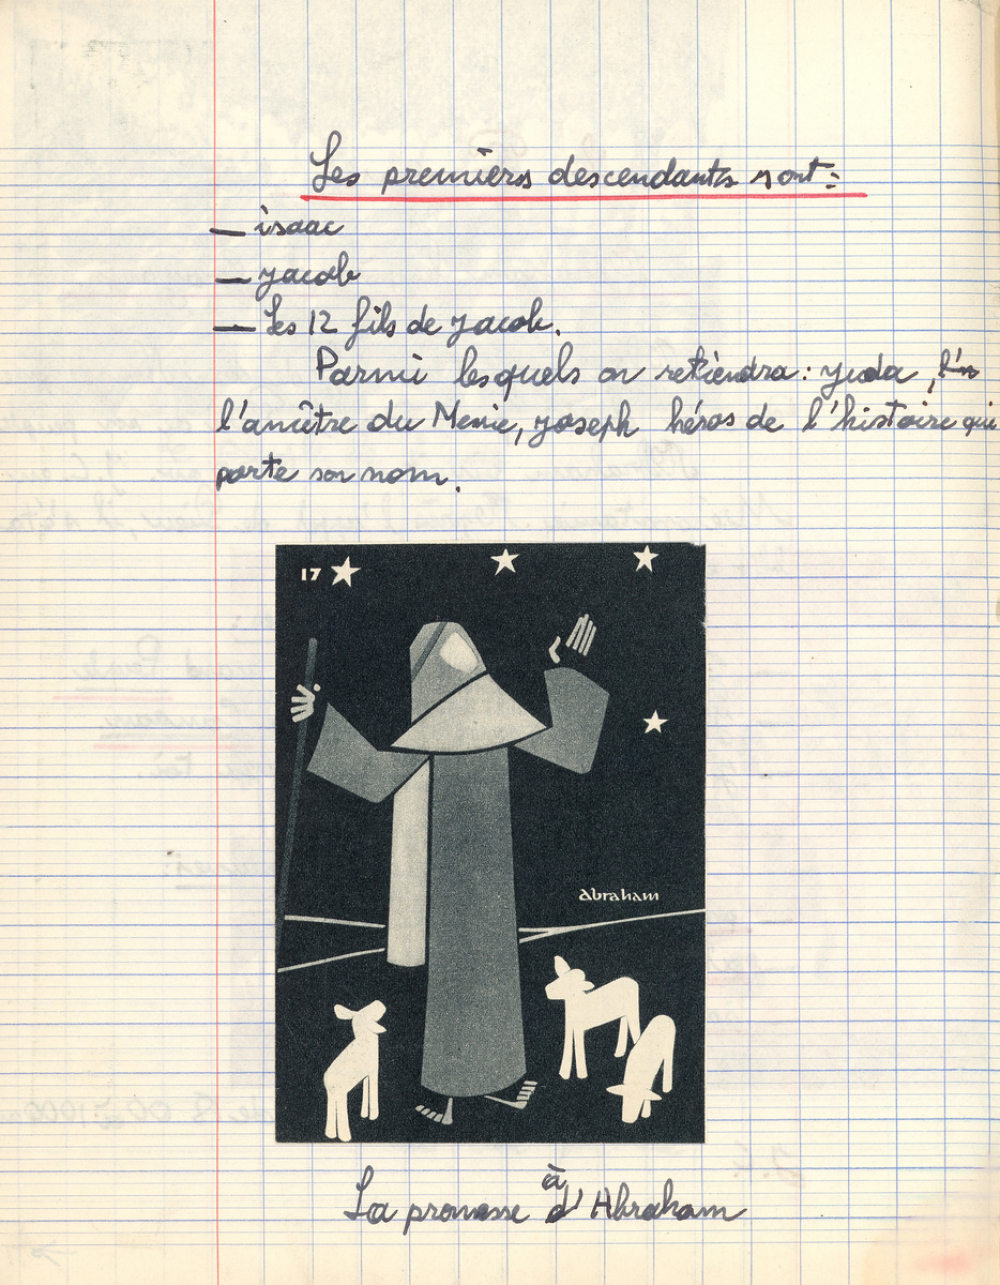 Les premièrs descendants sont:
— isaac
— yacob
— Les 12 fils de yacob.
Parmi lesquels on retiendra: yuda,
l'ancêtre du Messie, yoseph héros de l'histoire qui
porte son nom.
17
abraham
La promesse à d'Abraham